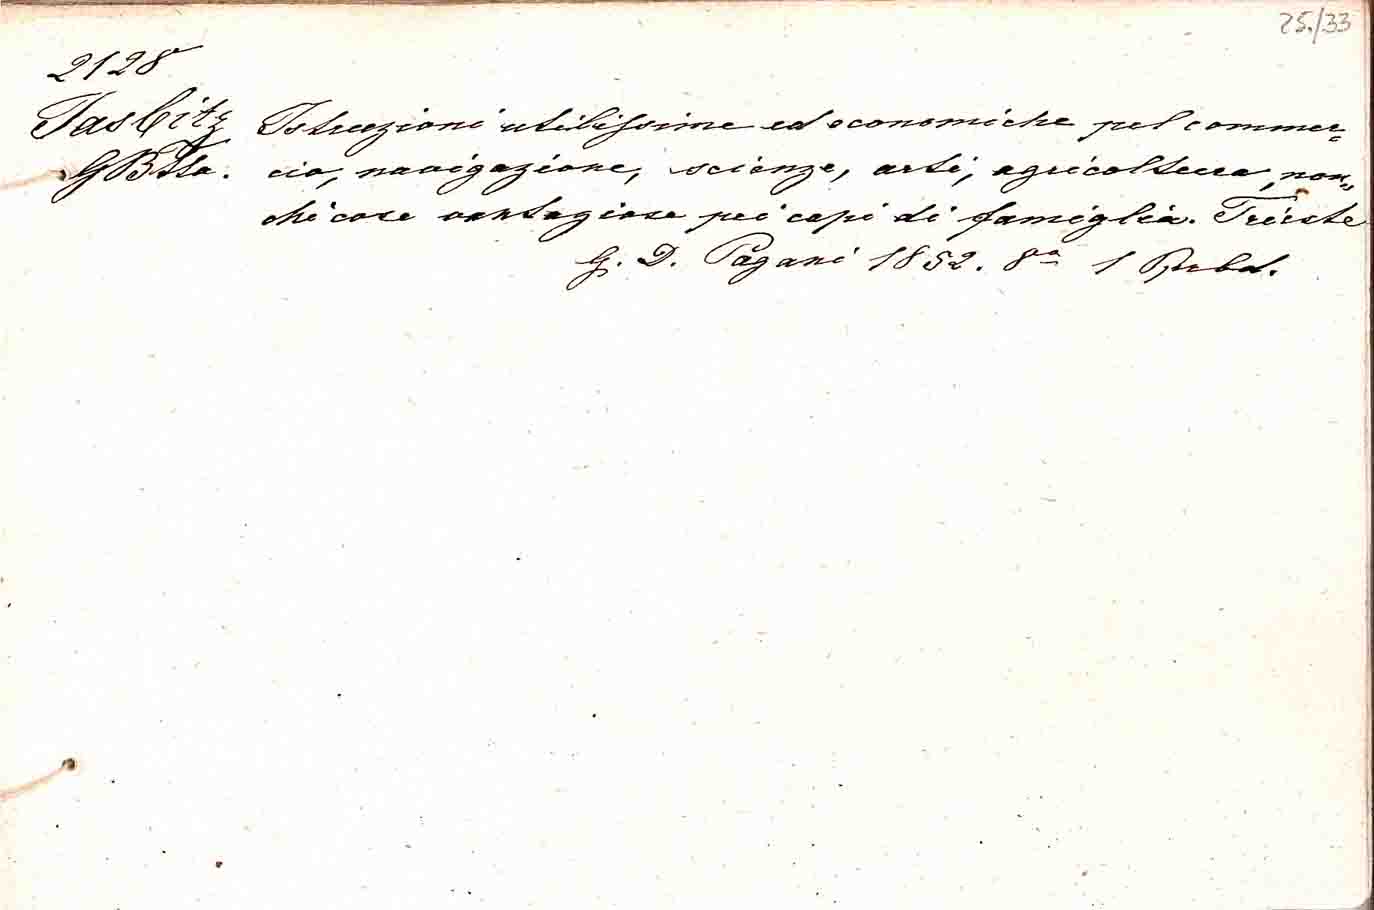 25./33
2128
Tasbitz Istruzioni utilissime ed economiche pel commer=
GBtta. cio, navigazione, scienze, arti, agricoltura, non=
chè cose vantaggiose pei capi di famiglia. Trieste
G. D. Pagani 1852. 8º 1 Ppbd.